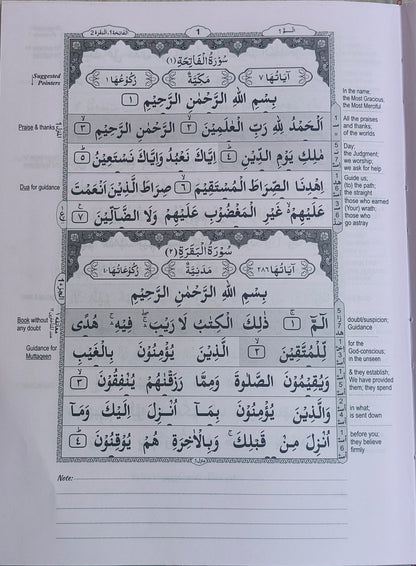 الفاتحة ١، البقرة ٢
1
الٓمّٓ ١
Suggested Pointers
سُوْرَةُ الْفَاتِحَةِ (١)
اٰيَاتُهَا ٧
مَكِّيَّةٌ
رُكُوْعُهَا ١
بِسْمِ اللّٰهِ الرَّحْمٰنِ الرَّحِيْمِ ١
In the name;
the Most Gracious,
the Most Merciful
Praise & thanks
اَلْحَمْدُ لِلّٰهِ رَبِّ الْعٰلَمِيْنَ ٢ الرَّحْمٰنِ الرَّحِيْمِ ٣
All the praises
and thanks;
of the worlds
مٰلِكِ يَوْمِ الدِّيْنِ ٤ اِيَّاكَ نَعْبُدُ وَاِيَّاكَ نَسْتَعِيْنُ ٥
Day;
the Judgment;
we worship;
we ask for help
Dua for guidance
اِهْدِنَا الصِّرَاطَ الْمُسْتَقِيْمَ ٦ صِرَاطَ الَّذِيْنَ اَنْعَمْتَ
Guide us;
(to) the path;
the straight
عَلَيْهِمْ غَيْرِ الْمَغْضُوْبِ عَلَيْهِمْ وَلَا الضَّآلِّيْنَ ٧
those who earned
(Your) wrath;
those who
go astray
سُوْرَةُ الْبَقَرَةِ (٢)
اٰيَاتُهَا ٢٨٦
مَدَنِيَّةٌ
رُكُوْعَاتُهَا ٤٠
بِسْمِ اللّٰهِ الرَّحْمٰنِ الرَّحِيْمِ
Book without
any doubt
الٓمّٓ ١ ذٰلِكَ الْكِتٰبُ لَا رَيْبَ فِيْهِ هُدًى
doubt/suspicion;
Guidance
Guidance for
Muttaqeen
لِّلْمُتَّقِيْنَ ٢ الَّذِيْنَ يُؤْمِنُوْنَ بِالْغَيْبِ
for the
God-conscious;
in the unseen
وَيُقِيْمُوْنَ الصَّلٰوةَ وَمِمَّا رَزَقْنٰهُمْ يُنْفِقُوْنَ ٣
& they establish;
We have provided
them; they spend
وَالَّذِيْنَ يُؤْمِنُوْنَ بِمَآ اُنْزِلَ اِلَيْكَ وَمَآ
in what;
is sent down
اُنْزِلَ مِنْ قَبْلِكَ وَبِالْاٰخِرَةِ هُمْ يُوْقِنُوْنَ ٤
before you;
they believe
firmly
Note: